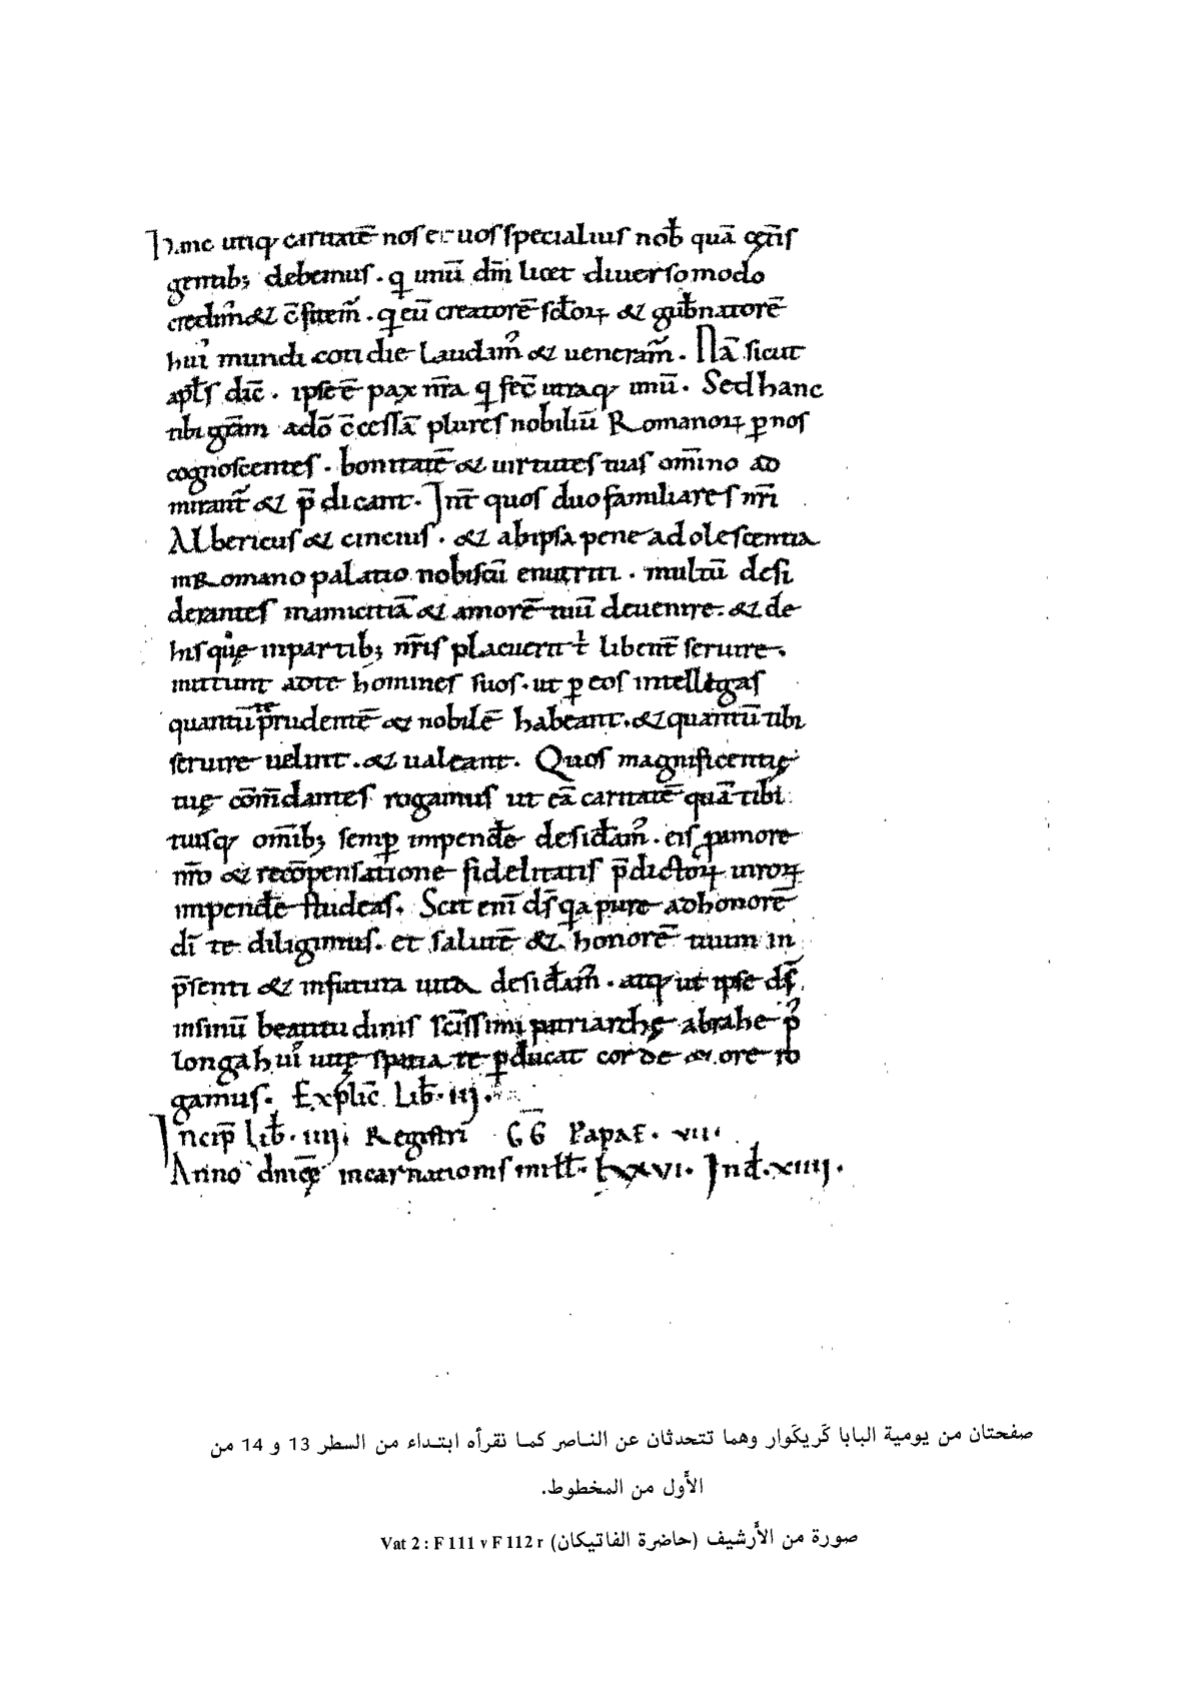 Hanc utiq; caritatē nos et uos specialius nob̄ quā cęt̄is
gentib; debemus. q unū dm̄ licet diuerso modo
credim᾽ & c̄fitem᾽. q eū creatorē sclo2ꝝ & gub̄natorē
hui᾽ mundi cotidie laudam᾽ & ueneram᾽. Nā sicut
apl̄s dic̄. ipse ē pax nr̄a q fec̄ utraq; unū. Sed hanc
tibi gr̄am a dō c̄cessā plures nobiliū Romanoꝝ p nos
cognoscentes. bonitatē & uirtutes tuas om̄ino ad
mirant᾽ & p̄dicant. Int̄ quos duo familiares nr̄i
Albericus & cincius. & ab ipsa pene adolescentia
in Romano palatio nobiscū enutriti. multū desi
derantes in amicitiā & amorē tuū deuenire. & de
his quę in partib; nr̄is placuerit t̄ libent̄ seruire.
mittunt ad te homines suos. ut p eos intellegas
quantū te prudentē & nobilē habeant. & quantū tibi
seruire uelint. & ualeant. Quos magnificentię
tuę cōm̄dantes rogamus ut eā caritatē quā tibi
tuisq; om̄ib; semp impend̄e desid̄am᾽. eis p amore
nr̄o & recōpensatione fidelitatis p̄dictoꝝ uiroꝝ
impend̄e studeas. Scit eni ds̄ qa pure ad honorē
dī te diligimus. et salutē & honorē tuum in
p̄senti & in futura uita desid̄am᾽. atq; ut ipse ds̄
in sinū beatitudinis sc̄issimi patriarchę abrahe p᾽
longa hui᾽ uitę spatia te pducat corde & ore ro
gamus. Explic̄ Lib̄. iij.
Incip̄ lib̄. iiij. Registri GG Papae. vii.
Anno dnicę incarnationis mill. lxxvi. Ind̄. xiiij.
صفحتان من يومية البابا كَريكَوار وهما تتحدثان عن الناصر كما نقرأه ابتداء من السطر 13 و 14 من
الأَول من المخطوط.
صورة من الأَرشيف (حاضرة الفاتيكان) Vat 2 : F 111 v F 112 r